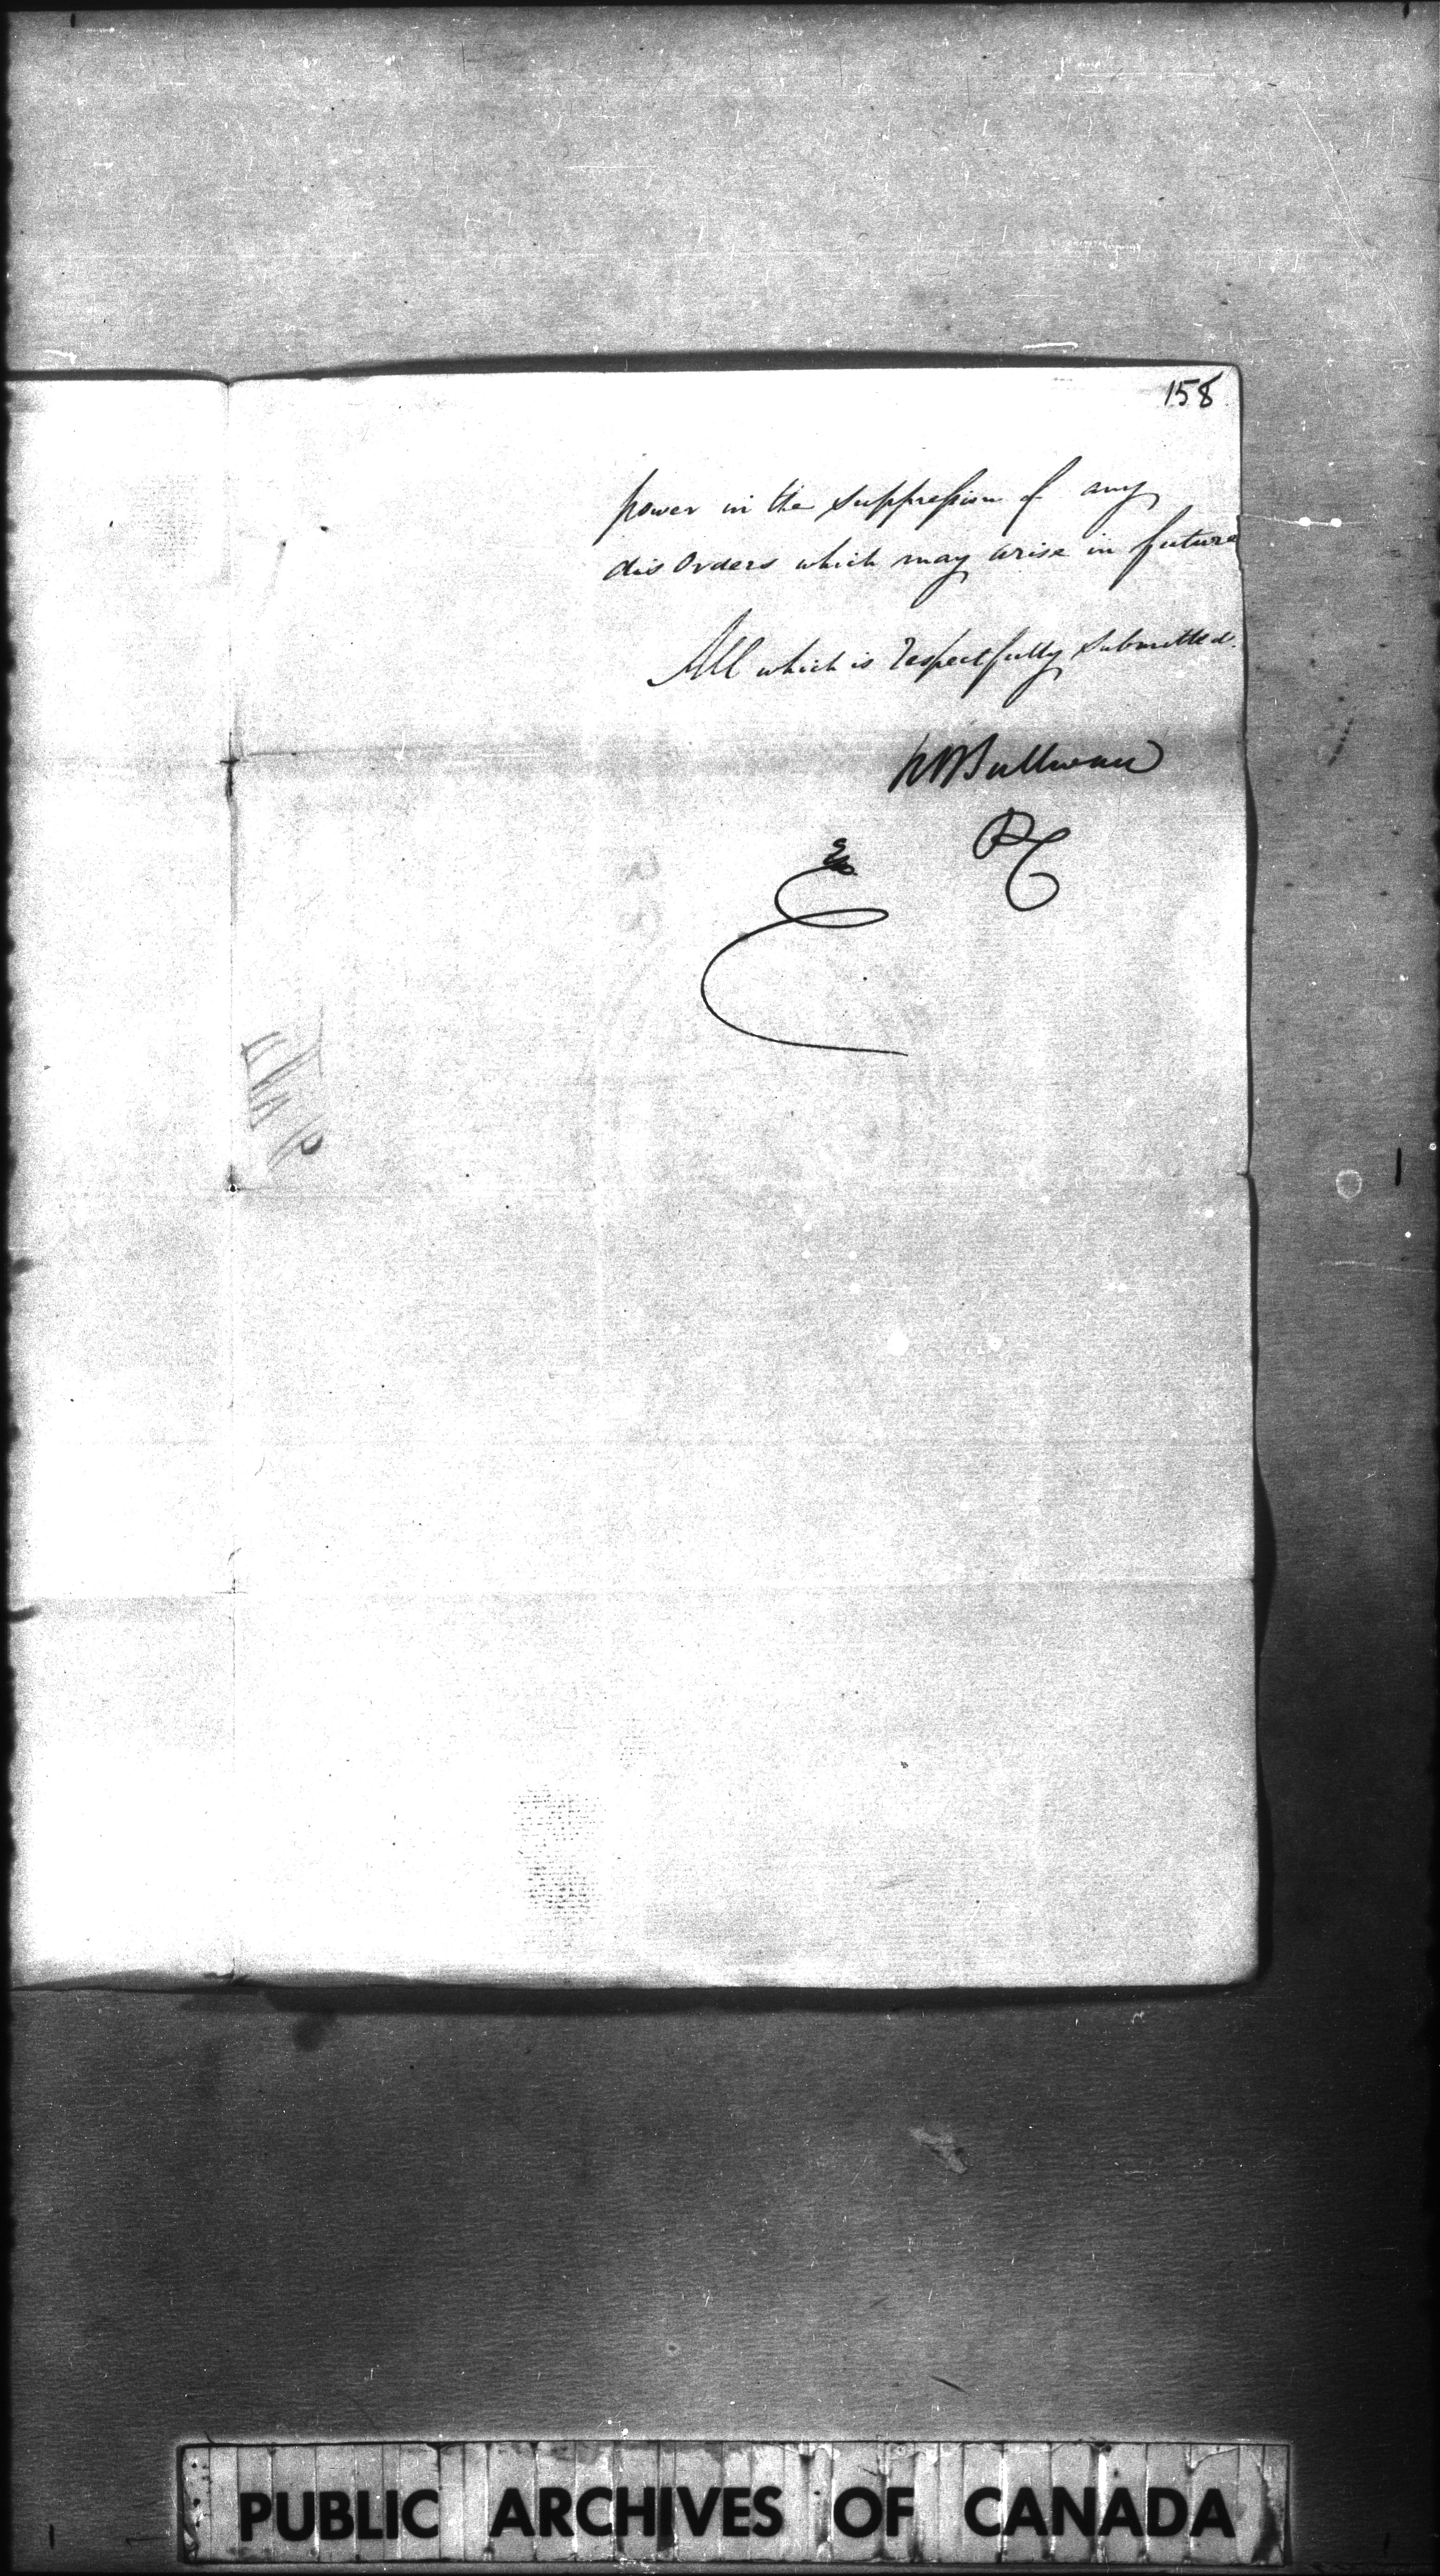 158
power in the suppression of any
dis Orders which may arise in future
All which is respectfully submitted.
RBSullivan
PC
PUBLIC ARCHIVES OF CANADA